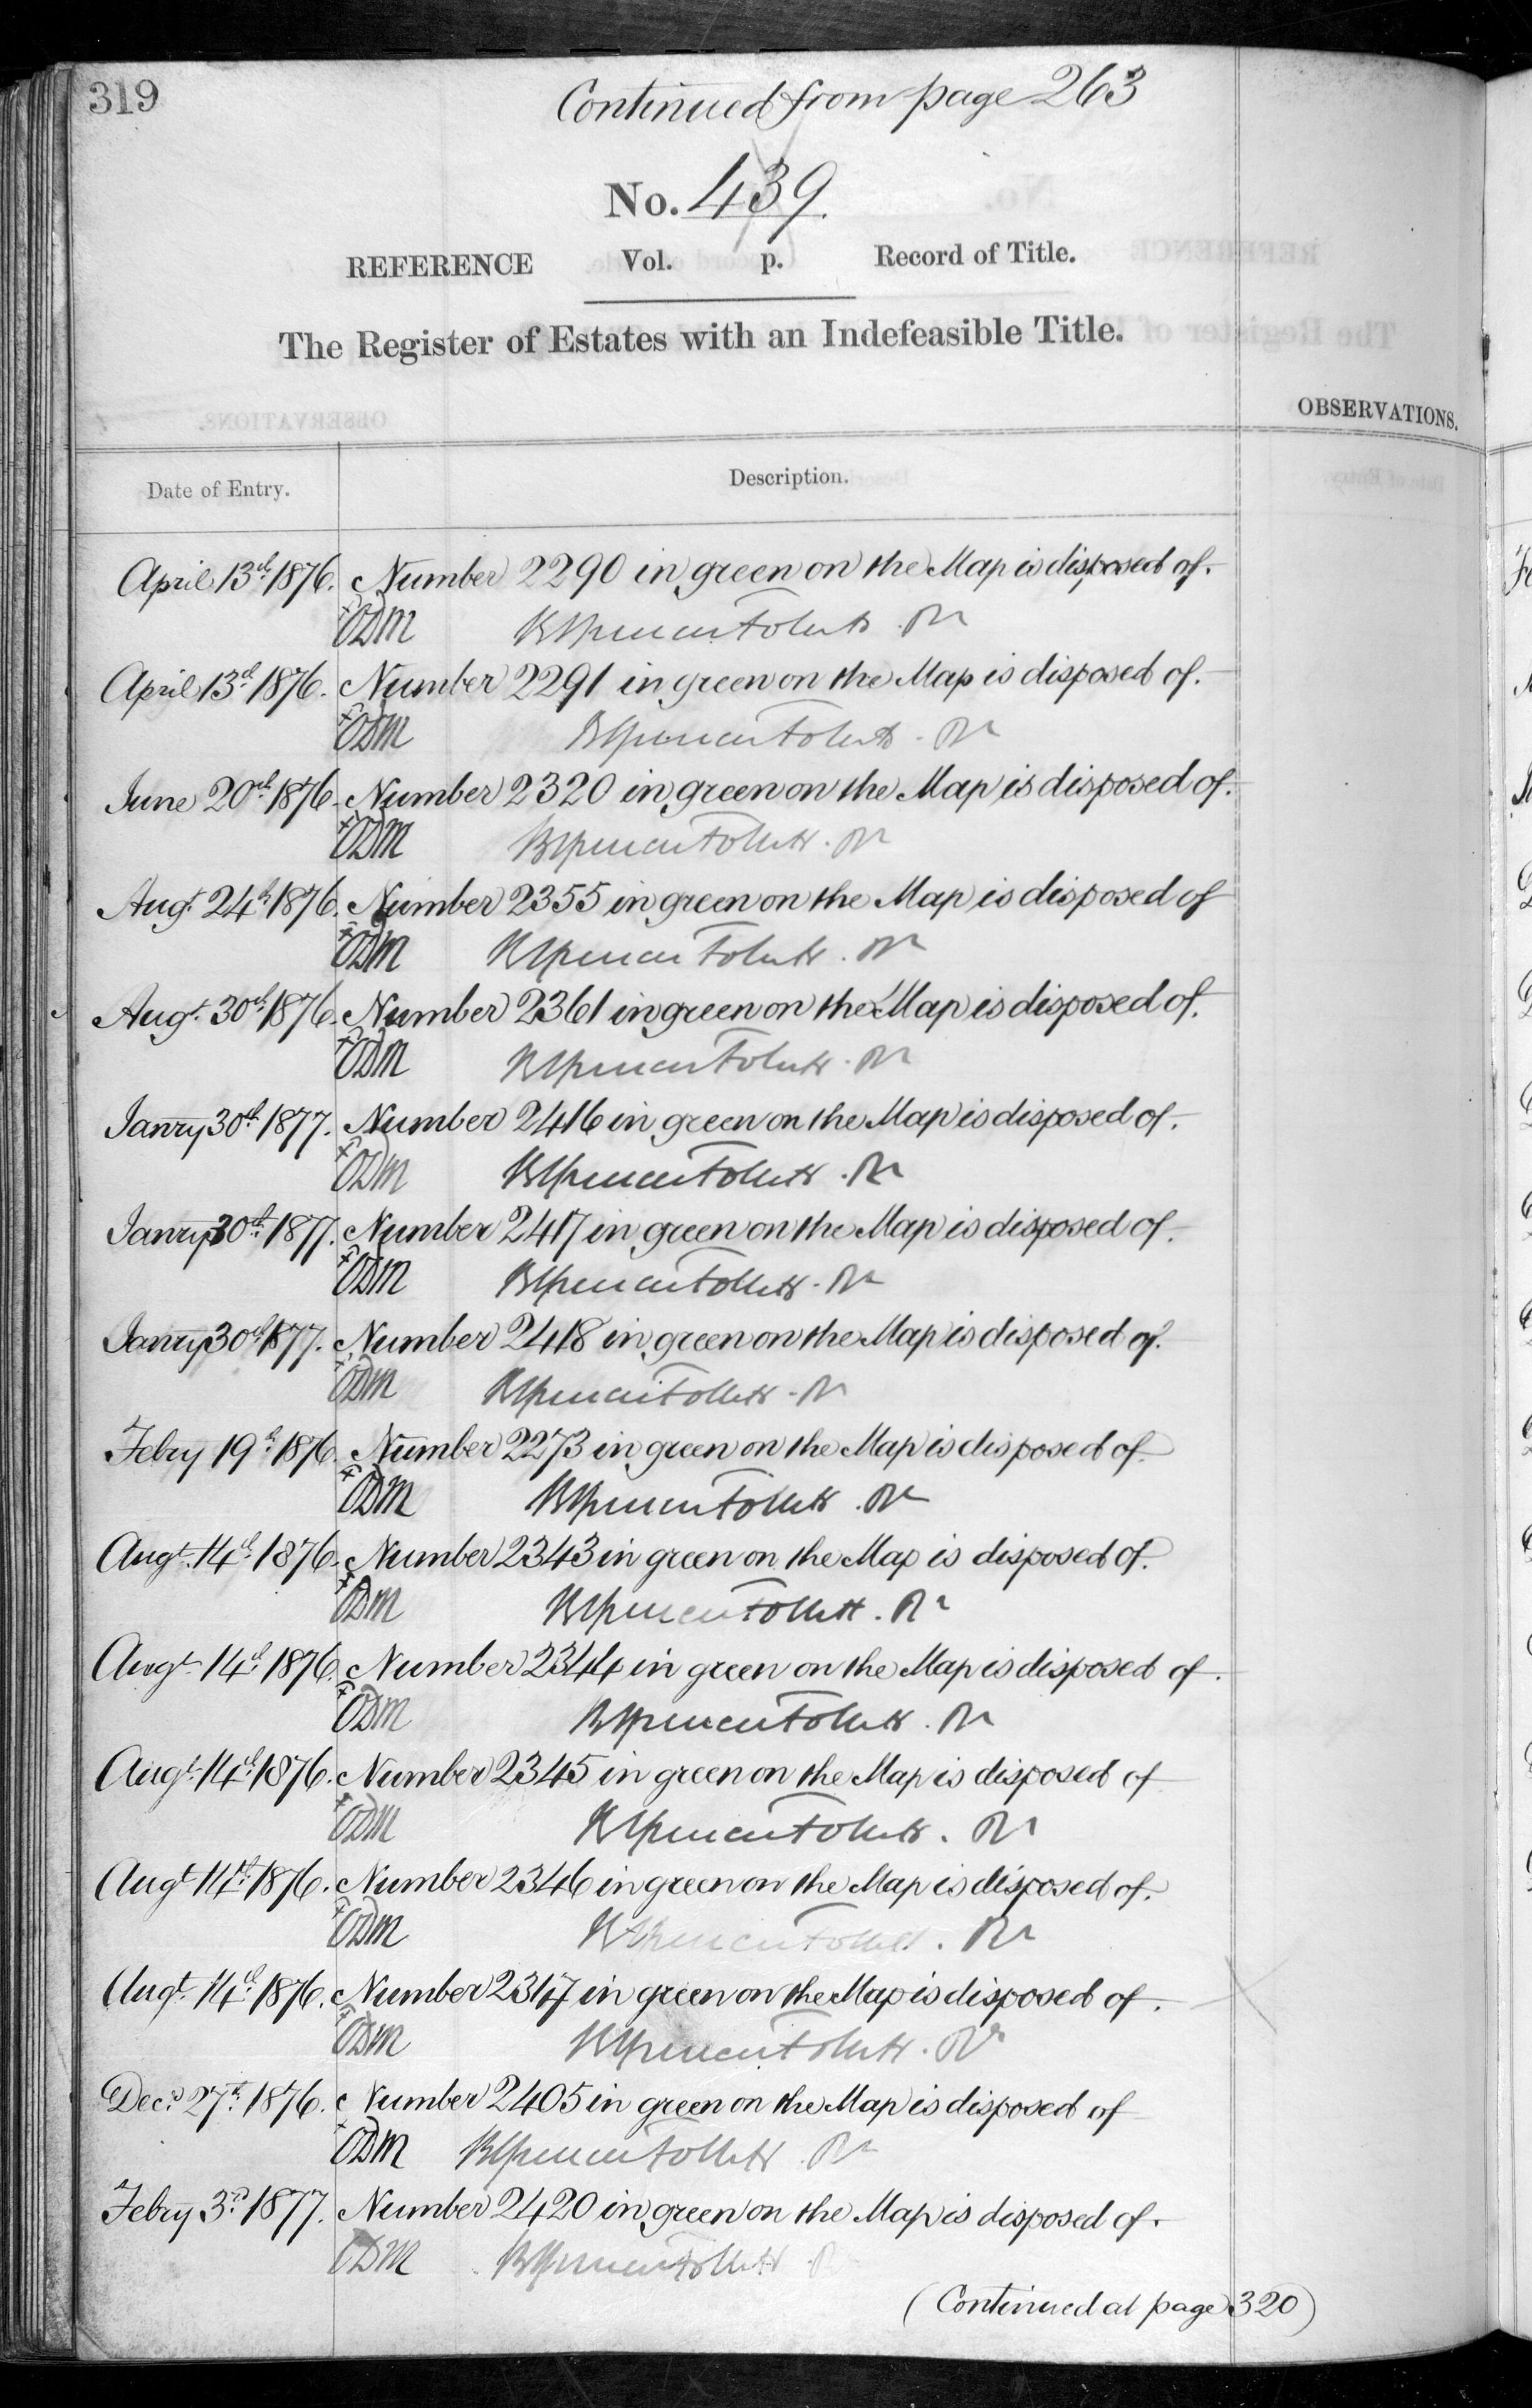 319
Continued from page 263
No. 439.
REFERENCE Vol. p. Record of Title.
The Register of Estates with an Indefeasible Title.
OBSERVATIONS.
Date of Entry. Description.
April 13th 1876. Number 2290 in green on the Map is disposed of.
ODM
April 13th 1876. Number 2291 in green on the Map is disposed of.
ODM
June 20th 1876. Number 2320 in green on the Map is disposed of.
ODM
Augt. 24th 1876. Number 2355 in green on the Map is disposed of
ODM
Augt. 30th 1876. Number 2361 in green on the Map is disposed of.
ODM
Janry 30th 1877. Number 2416 in green on the Map is disposed of.
ODM
Janry 30th 1877. Number 2417 in green on the Map is disposed of.
ODM
Janry 30th 1877. Number 2418 in green on the Map is disposed of.
ODM
Febry 19th 1876. Number 2273 in green on the Map is disposed of
ODM
Augt. 14th 1876. Number 2343 in green on the Map is disposed of.
ODM
Augt. 14th 1876. Number 2344 in green on the Map is disposed of.
ODM
Augt. 14th 1876. Number 2345 in green on the Map is disposed of
ODM
Augt 14th 1876. Number 2346 in green on the Map is disposed of.
ODM
Augt. 14th 1876. Number 2347 in green on the Map is disposed of.
ODM
Decr. 27th 1876. Number 2405 in green on the Map is disposed of
ODM
Febry 3rd 1877. Number 2420 in green on the Map is disposed of.
ODM
(Continued at page 320)